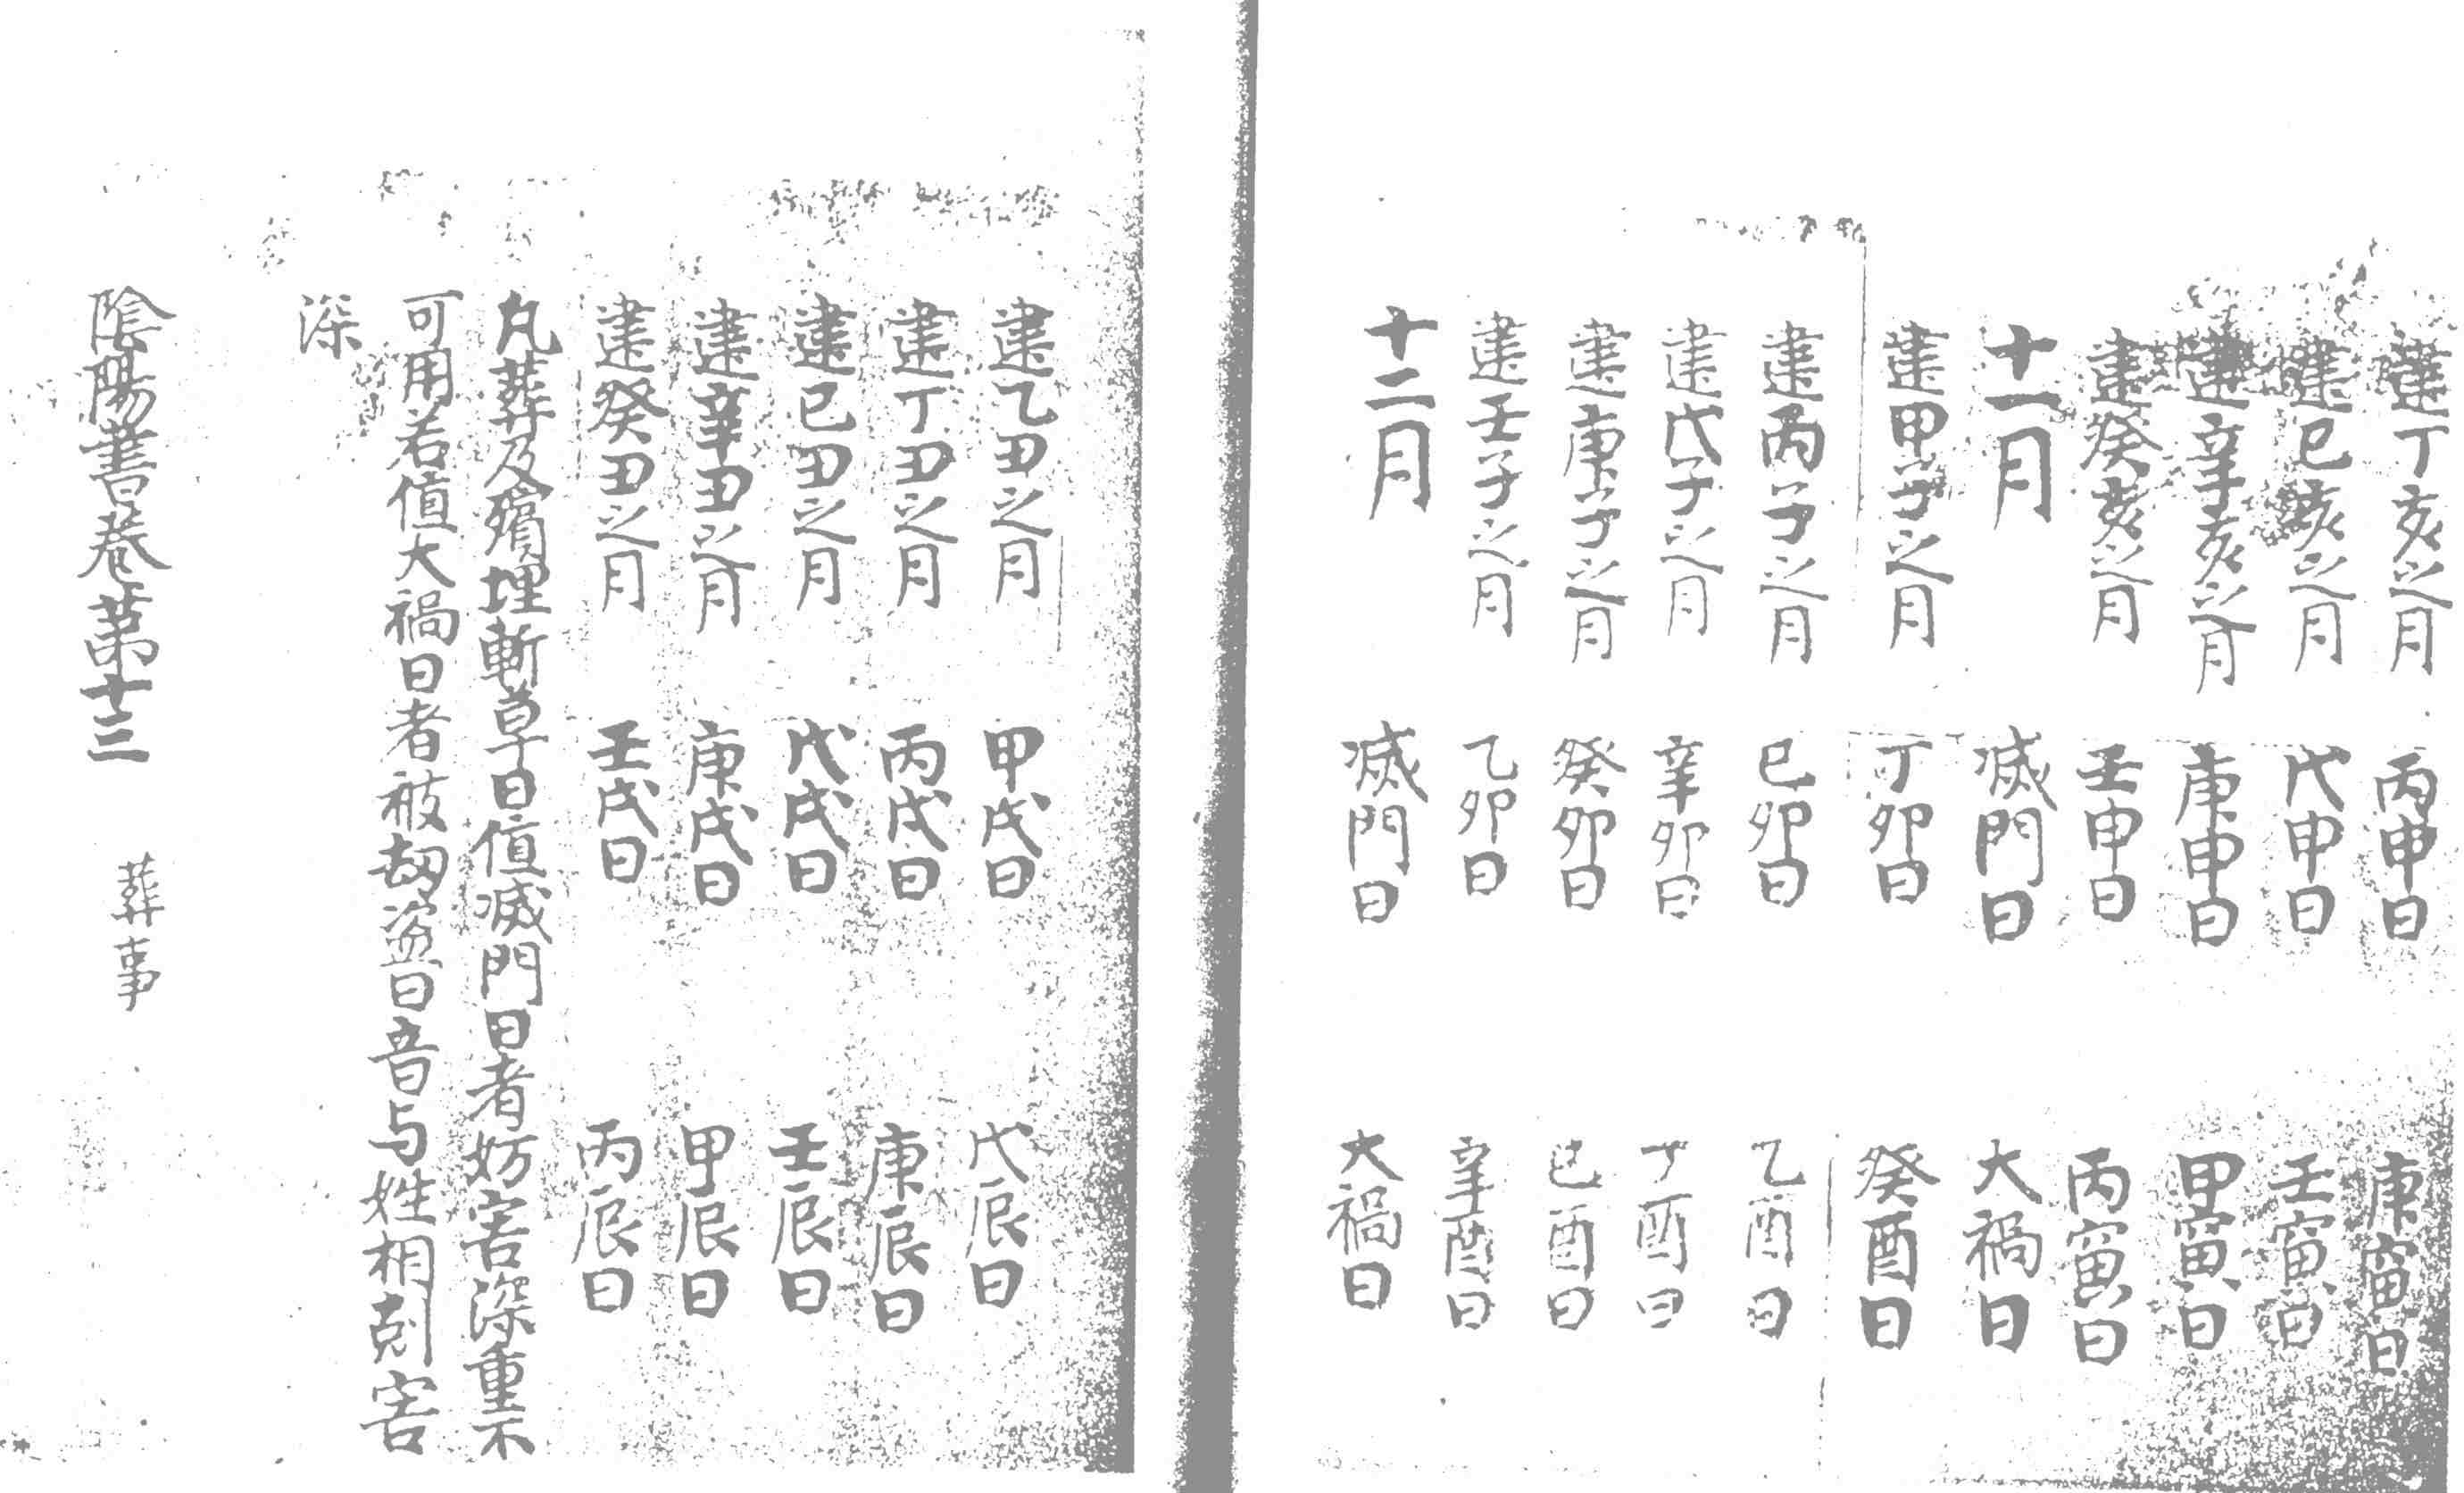 建丁亥之月 丙申日 庚寅日
建己亥之月 戊申日 壬寅日
建辛亥之月 庚申日 甲寅日
建癸亥之月 壬申日 丙寅日
十一月 滅門日 大禍日
建甲子之月 丁卯日 癸酉日
建丙子之月 己卯日 乙酉日
建戊子之月 辛卯日 丁酉日
建庚子之月 癸卯日 己酉日
建壬子之月 乙卯日 辛酉日
十二月 滅門日 大禍日
建乙丑之月 甲戌日 戊辰日
建丁丑之月 丙戌日 庚辰日
建己丑之月 戊戌日 壬辰日
建辛丑之月 庚戌日 甲辰日
建癸丑之月 壬戌日 丙辰日
凡葬及殯埋斬草日值滅門日者妨害深重不
可用若值大禍日者被劫盜日音与姓相剋害
深
陰陽書卷第十三 葬事